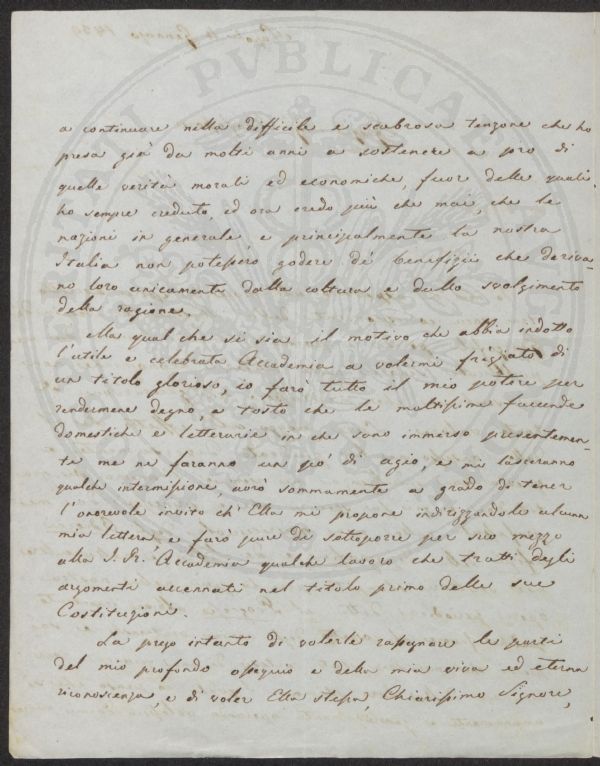 a continuare nella difficile e scabrosa tenzone che ho
presa già da molti anni a sostenere a pro di
quelle verità morali ed economiche, fuor delle quali
ho sempre creduto, ed ora credo più che mai, che le
nazioni in generale e principalmente la nostra
Italia non potessero godere de' benefizii che deriva-
no loro unicamente dalla coltura e dallo svolgimento
della ragione.
Ma qual che si sia il motivo che abbia indotto
l'utile e celebrata Accademia a volermi fregiato di
un titolo glorioso, io farò tutto il mio potere per
rendermene degno, e tosto che le moltissime faccende
domestiche e letterarie in che sono immerso presentemen-
te me ne faranno un po' di agio, e mi lasceranno
qualche intermissione, avrò sommamente a grado di tener
l'onorevole invito ch'Ella mi propone indirizzandole alcuna
mia lettera, e farò pure di sottoporre per suo mezzo
alla I. R. Accademia qualche lavoro che tratti degli
argomenti accennati nel titolo primo delle sue
Costituzioni.
La prego intanto di volerle rassegnare le parti
del mio profondo ossequio e della mia viva ed eterna
riconoscenza, e di voler Ella stessa, Chiarissimo Signore,
PVBLICA